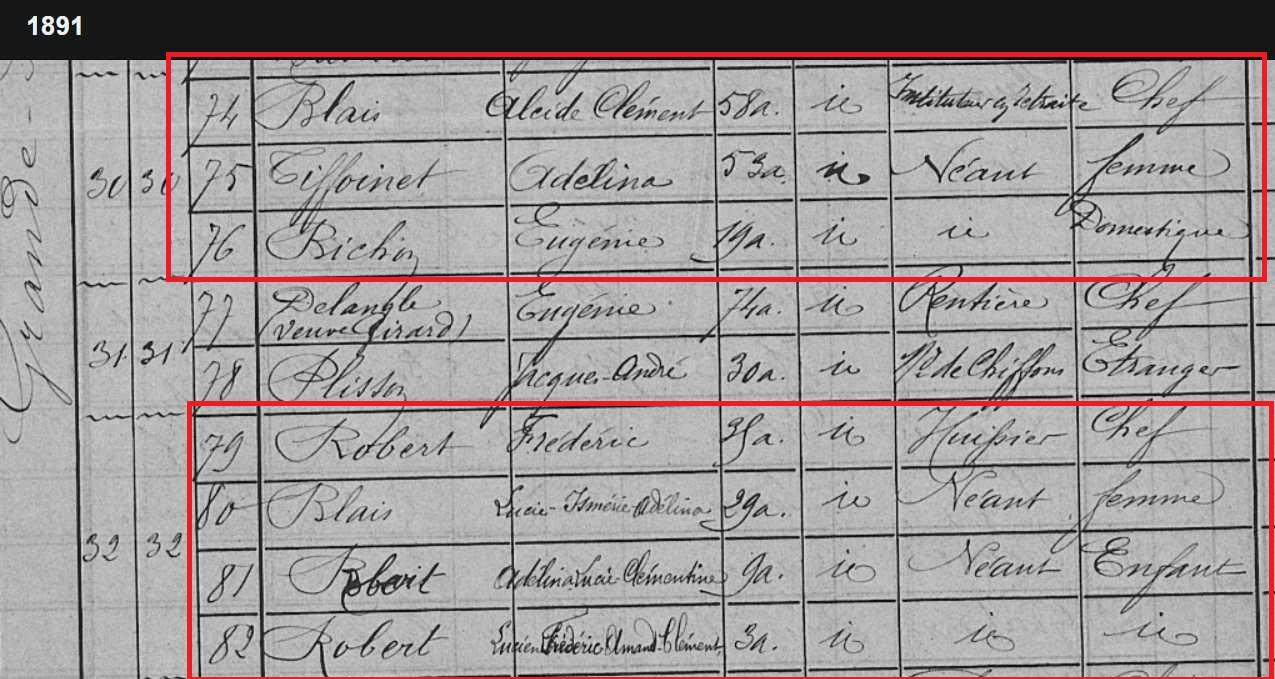 1891
Grande
74 Blais Alcide Clément 58a. id Instituteur en retraite Chef
30 30 75 Tiffoinet Adélina 53a. id Néant femme
76 Bichon Eugénie 19a. id id Domestique
77 Delangle Eugénie 74a. id Rentière Chef
(veuve Girard)
31 31 78 Plisson Jacques-André 30a. id Md de Chiffons Etranger
79 Robert Frédéric 35a. id Huissier Chef
80 Blais Lucie-Ismérie-Adélina 29a. id Néant femme
32 32 81 Robert Adélina Lucie Clémentine 9a. id Néant Enfant
82 Robert Lucien Frédéric Amand-Clément 3a. id id id